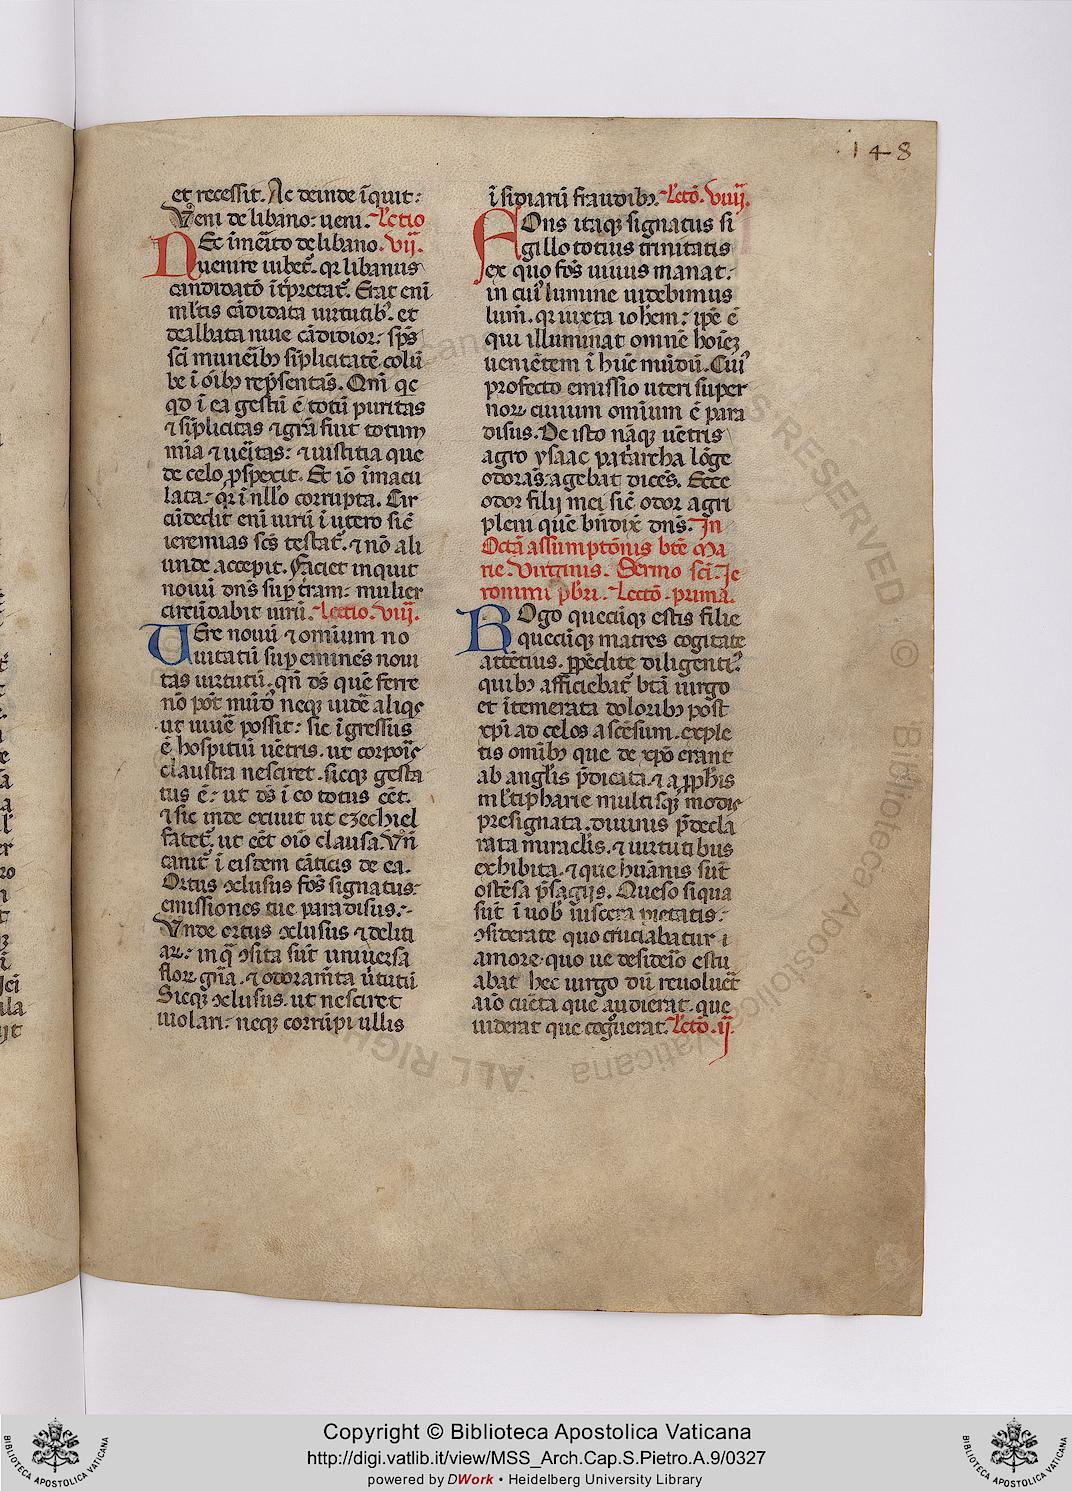 148
et recessit. Ac deinde īquit:
Veni de libano: ueni. Lectio
NEc īmēito de libano. vij.
uenire iubet̄. qr libanus
candidatō īt̄pretat̄. Erat enī
ml̄tis cādidata uirtutibꝰ. et
dealbata niue cādidior: sp̄s
sc̄i munēibꝫ sīplicitatē colū
be ī oībꝫ rep̄sentās. Qm̄ qc
qd ī ea gestū ē totū puritas
⁊ sīplicitas ⁊ grā fuit totum
mīa ⁊ uēitas: ⁊ iustitia que
de celo ꝓspexit. Et iō īmacu
lata: qr ī nullo corrupta. Cir
cūdedit enī uirū ī utero sic̄
ieremias sc̄s testat̄. ⁊ nō ali
unde accepit. Faciet inquit
nouū dn̄s sup t̄ram: mulier
circūdabit uirū. Lectio. viij.
VEre nouū ⁊ omīum no
uitatū sup eminēs noui
tas uirtutū. qn̄ ds̄ quē ferre
nō pot̄ mūdꝰ neqꝫ uidē aliqs
ut uiuē possit: sic īgressus
ē hospitiū uētris. ut corporis
claustra nesciret. sicqꝫ gesta
tus ē: ut ds̄ ī eo totus eēt.
⁊ sic inde exiuit ut ezechiel
fatet̄. ut eēt oīo clausa. Vn̄
canit̄ ī eisdem cāticis de ea.
Ortus ꝯclusus fōs signatus:
emissiones tue paradisus.
Vnde ortus ꝯclusus ⁊ deliti
aꝝ: in q̄ ꝯsita sūt uniuersa
floꝝ gn̄a. ⁊ odoram̄ta ūtutū
Sicqꝫ ꝯclusus. ut nesciret
uiolari: neqꝫ corrūpi ullis
ī sidiarū fraudibꝫ. Lectō. viiij.
FOns itaqꝫ signatus si
gillo totius trinitatis
ex quo fōs uiuus manat:
in cuiꝰ lumine uidebimus
lum̄. qr iuxta ioh̄em: ip̄e ē
qui illuminat omnē hoīez
ueniētem ī hūc mūdū. Cuiꝰ
profecto emissio uteri super
noꝝ ciuium omīum ē para
disus. De isto nāqꝫ uētris
agro ysaac pat̄archa lōge
odorās: agebat dicēs. Ecce
odor filij mei sic̄ odor agri
pleni quē bn̄dix̄ dn̄s. In
Octā assumptōnis bt̄e Ma
rie. Virginis. Sermo sc̄i. Ie
ronimi p̄bri. Lectō. prima.
ROgo quecūqꝫ estis filie
quecūqꝫ matres cogitate
attētius. ꝑpēdite diligentiꝰ.
quibꝫ afficiebat̄ bt̄a uirgo
et ītemerata doloribꝫ post
xp̄i ad celos ascēsum. exple
tis omībꝫ que de xp̄o erant
ab angl̄is p̄dicata. ⁊ a ꝓph̄is
ml̄tipharie multisqꝫ modis
presignata. diuinis p̄decla
rata miraclis. ⁊ uirtutibus
exhibita. ⁊ que hūanis sūt
ostēsa p̄sagijs. Queso siqua
sūt ī uob̄ uiscera pietatis:
ꝯsiderate quo cruciabatur ī
amore. quo ue desiderio estu
abat hec uirgo dū reuoluēt
aīo cūcta que audierat. que
uiderat que cog̊uerat. Lectō. ij.
Copyright © Biblioteca Apostolica Vaticana
http://digi.vatlib.it/view/MSS_Arch.Cap.S.Pietro.A.9/0327
powered by DWork • Heidelberg University Library
BIBLIOTECA APOSTOLICA VATICANA
BIBLIOTECA APOSTOLICA VATICANA